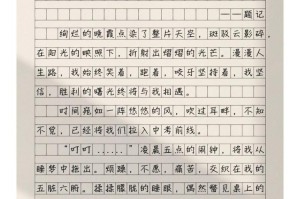 ——题记
绚烂的晚霞点染了整片天空,斑驳云影碎,
在阳光的映照下,折射出熠熠的光芒。漫漫人
生路,我始终笑着,跑着,咬牙坚持着,我坚
信,胜利的曙光终将与我相遇。
时间宛如一阵悠悠的风,吹过耳畔,不知
不觉,已经将我们拉入中考前线。
“叮叮……”凌晨五点的闹钟,将我从
睡梦中拖出。烦躁,不愿,痛苦,交织在我的
五脏六腑。揉揉朦胧的睡眼,偶然瞥见桌上的